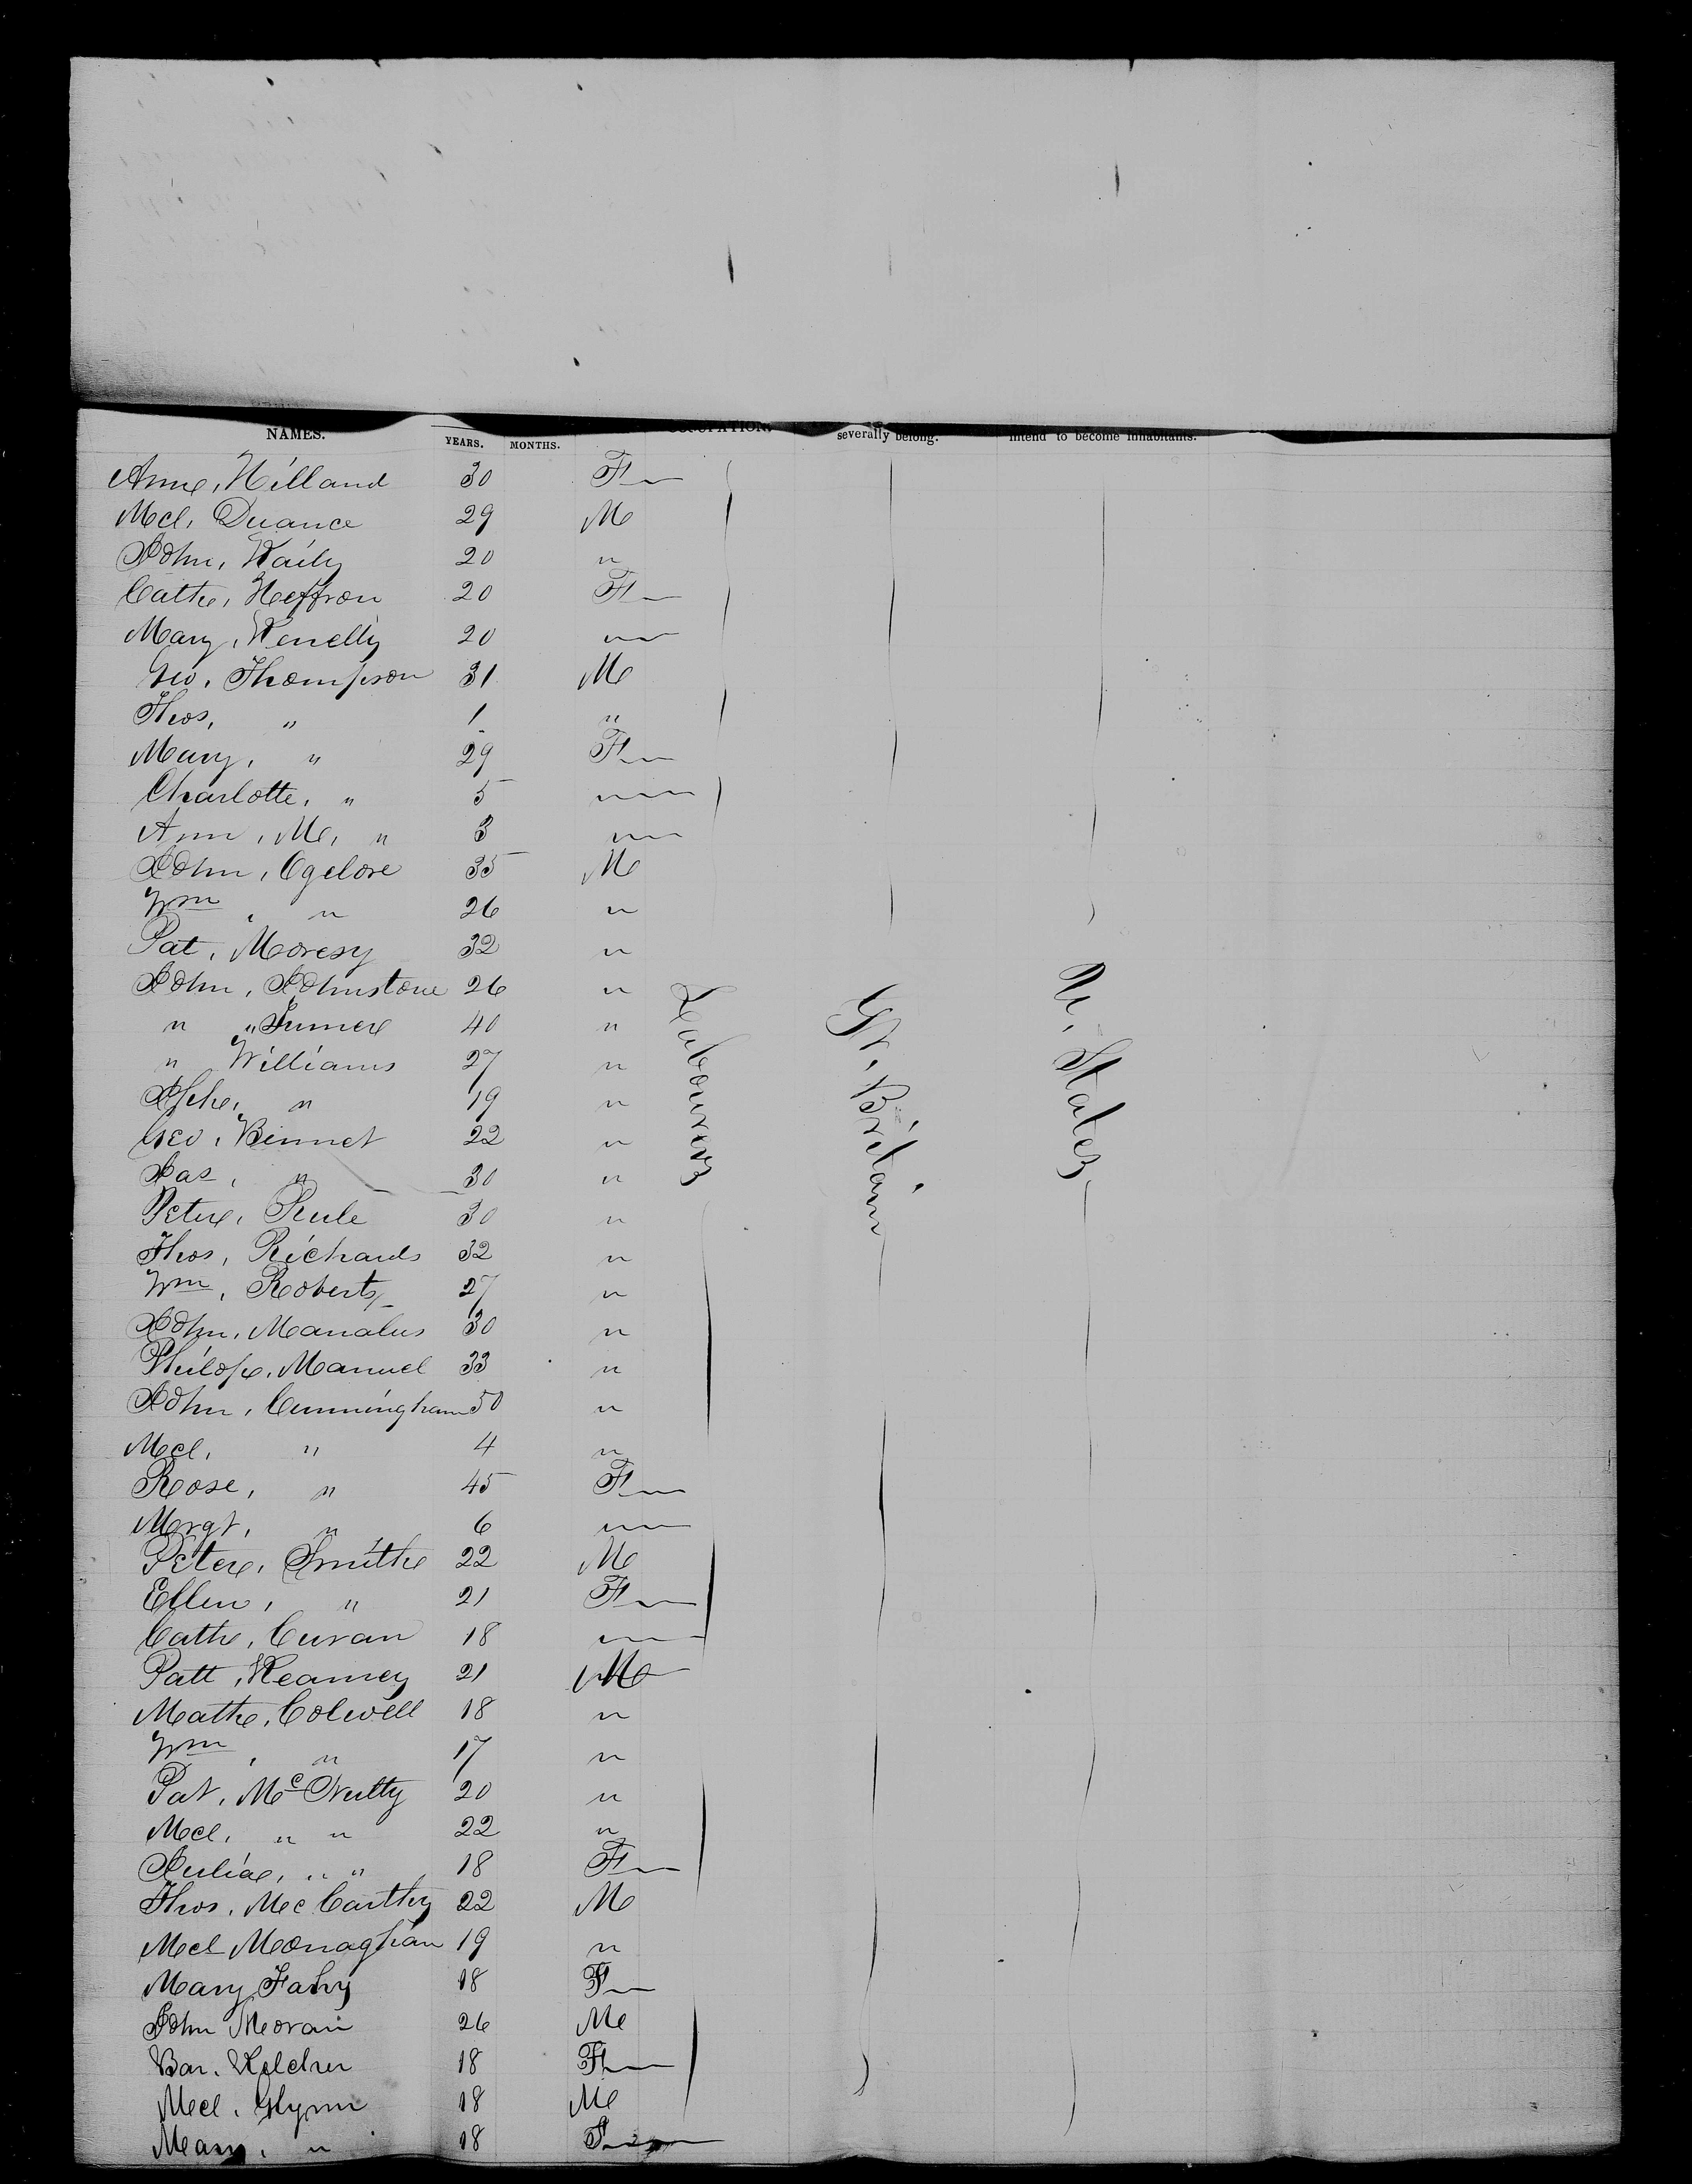 NAMES. YEARS. MONTHS. OCCUPATION. severally belong. intend to become inhabitants.
Anne, Hilland 30 F
Mcl, Duance 29 M
John, Kaily 20 "
Cathe, Heffron 20 F
Mary, Kenelly 20 "
Geo. Thompson 31 M
Thos, " 1 "
Mary, " 29 F
Charlotte, " 5 "
Ann, M, " 3 "
John, Ogelore 35 M
Wm, " 26 "
Pat, Moresy 32 "
John, Johnstone 26 "
" " Jumer 40 "
" Williams 27 "
" 19 "
Geo, Binnet 22 "
Jas, " 30 "
Peter, Rule 30 "
Thos, Richards 32 "
Wm, Roberts 27 "
John, Manalus 30 "
Philop, Manuel 33 "
John, Cunningham 50 "
Mcl, " 4 "
Rose, " 45 F
Margt, " 6 "
Peter, Smith 22 M
Ellen, " 21 F
Cath, Curan 18 "
Patt, Kearney 21 M
Math, Colwell 18 "
Wm, " 17 "
Pat, McNulty 20 "
Mcl, " " 22 "
Julia, " " 18 F
Thos, McCarthy 22 M
Mcl Monaghan 19 "
Mary Fahy 18 F
John Moran 26 M
Bar. Kelcher 18 F
Mcl, Glynn 18 M
Mary, " 18 F
Labourers
Gt. Britain
U. States